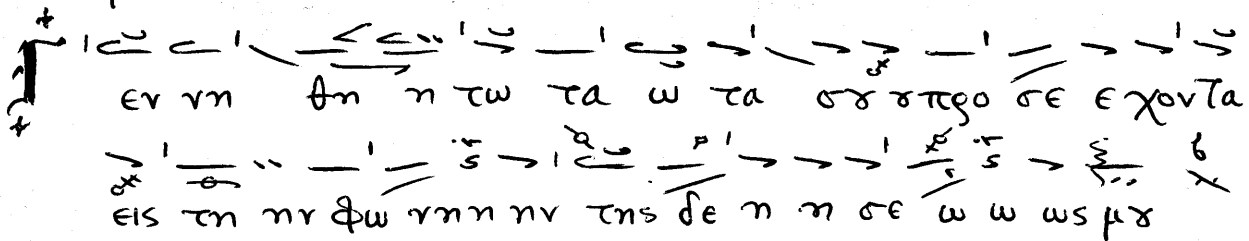 Γ εν νη θη η τω τα ω τα σȣ ȣ προ σε ε χοντα
εις τη ην φω νηη ην της δε η η σε ω ω ως μȣ